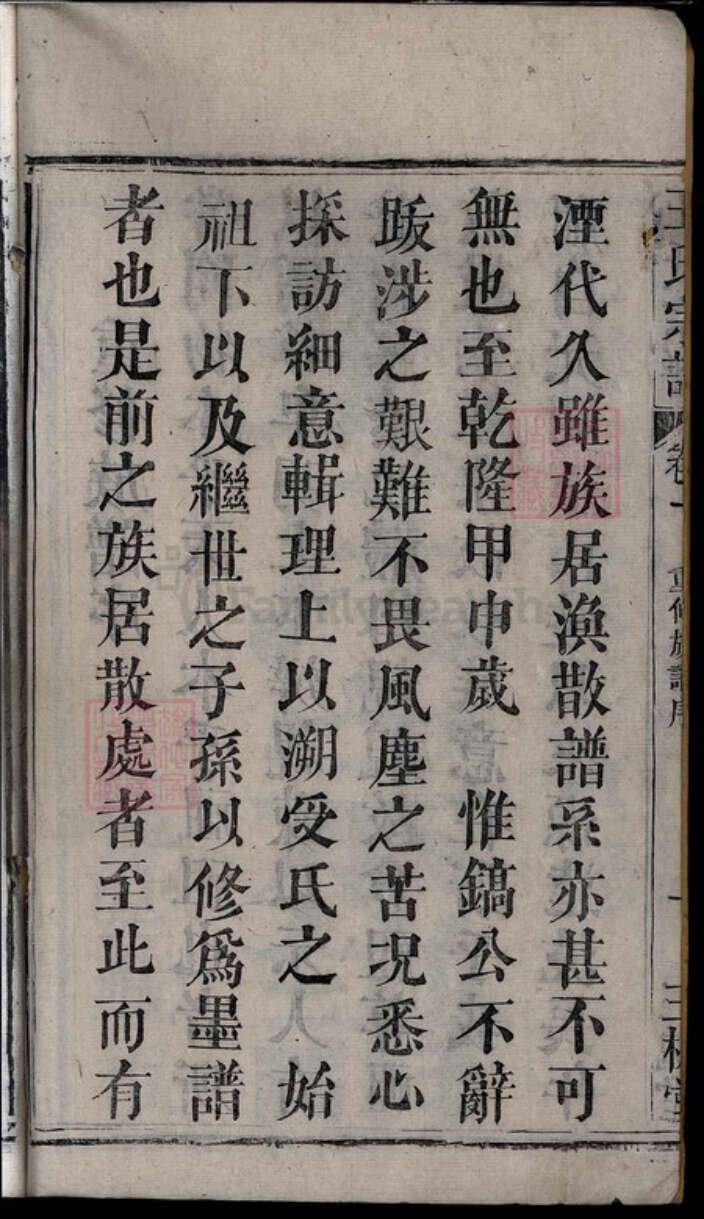 王氏宗譜 卷一 重修族譜序 一 三槐堂
湮代久雖族居渙散譜系亦甚不可
無也至乾隆甲申歲 惟鎬公不辭
跋涉之艱難不畏風塵之苦況悉心
採訪細意輯理上以溯受氏之 始
祖下以及繼世之子孫以修爲墨譜
者也是前之族居散處者至此而有